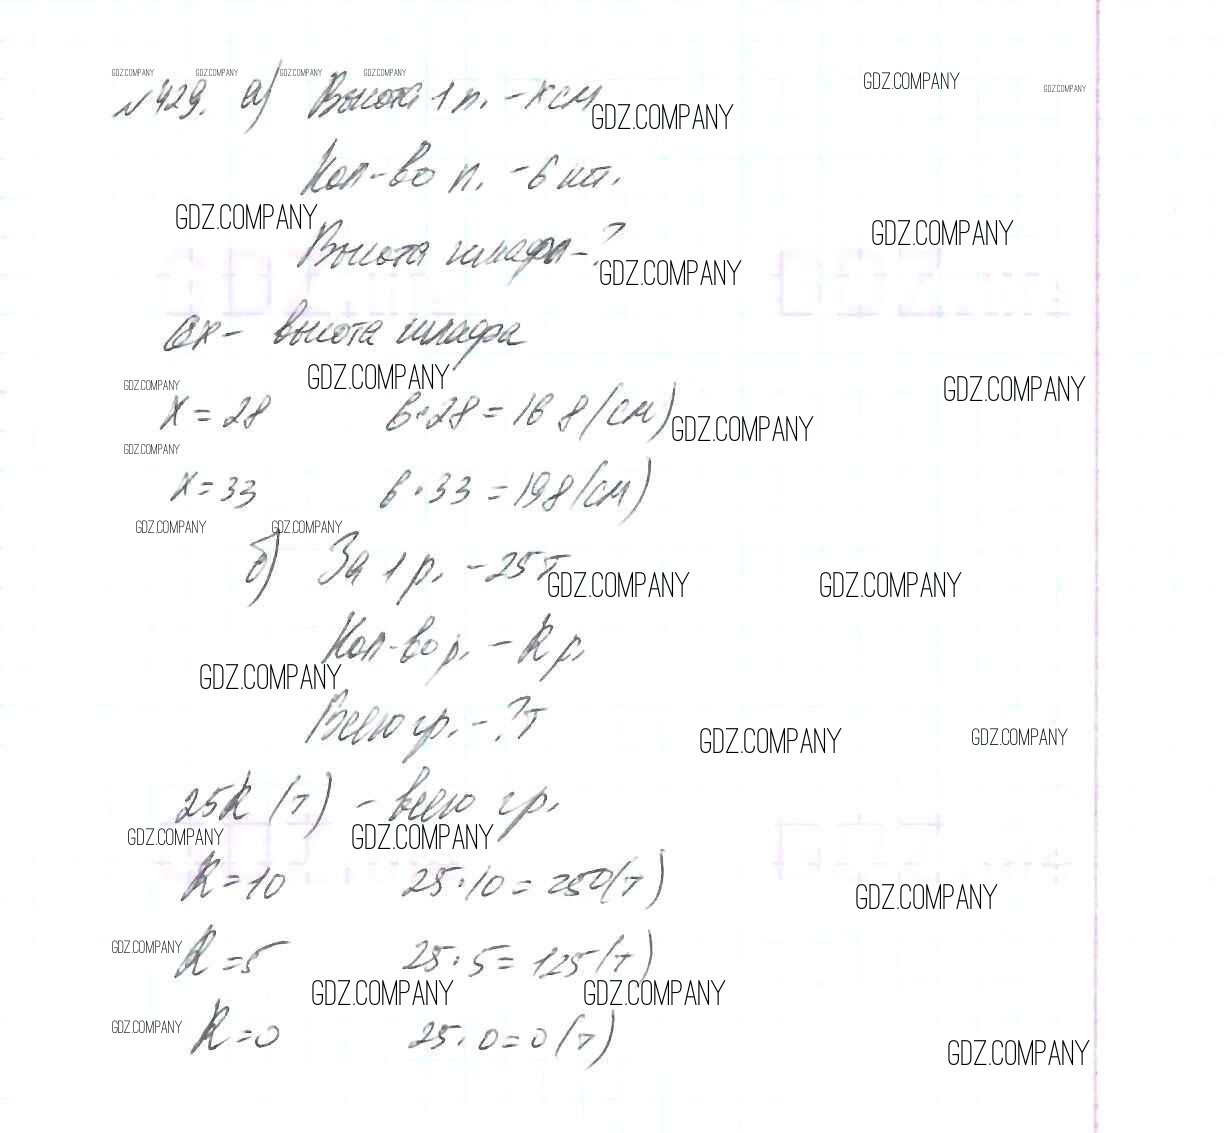 GDZ.COMPANY GDZ.COMPANY GDZ.COMPANY GDZ.COMPANY
GDZ.COMPANY
GDZ.COMPANY
№429. а) Высота 1 п. - х см
GDZ.COMPANY
Кол-во п. - 6 шт.
GDZ.COMPANY
GDZ.COMPANY
Высота шкафа - ?
GDZ.COMPANY
6х - высота шкафа
GDZ.COMPANY
GDZ.COMPANY
GDZ.COMPANY
х = 28 6·28 = 168 (см)
GDZ.COMPANY
GDZ.COMPANY
х = 33 6·33 = 198 (см)
GDZ.COMPANY GDZ.COMPANY
б) За 1 р. - 25 т
GDZ.COMPANY GDZ.COMPANY
Кол-во р. - k р.
GDZ.COMPANY
Всего гр. - ? т
GDZ.COMPANY GDZ.COMPANY
25k (т) - всего гр.
GDZ.COMPANY GDZ.COMPANY
k = 10 25·10 = 250 (т)
GDZ.COMPANY
GDZ.COMPANY
k = 5 25·5 = 125 (т)
GDZ.COMPANY GDZ.COMPANY
GDZ.COMPANY
k = 0 25·0 = 0 (т)
GDZ.COMPANY